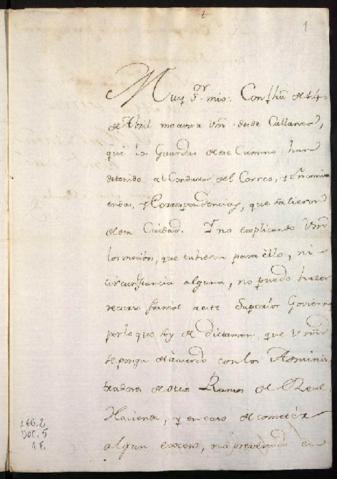 1
Muy S.or mio. Con fha de
de Abril me avisa Vm. desde Callanca,
que la Guardia de ese Camino, han
detenido al Conductor del Correo, y Encomi
endas, y Correspondencia, que salieron
de esta Ciudad. Y no explicando Vm.
los motivos, que tubiera para ello, ni
circunstancia alguna, no puedo hacer
recurso formal a este Superior Govierno
por lo que soy de dictamen, que Vm.
se ponga de acuerdo con los Adminis
tradores de otros Ramos de Real
Hacienda, y en caso de cometer
algun exceso, me prevendrá
LEG. 2
DOC. 5
1 F.